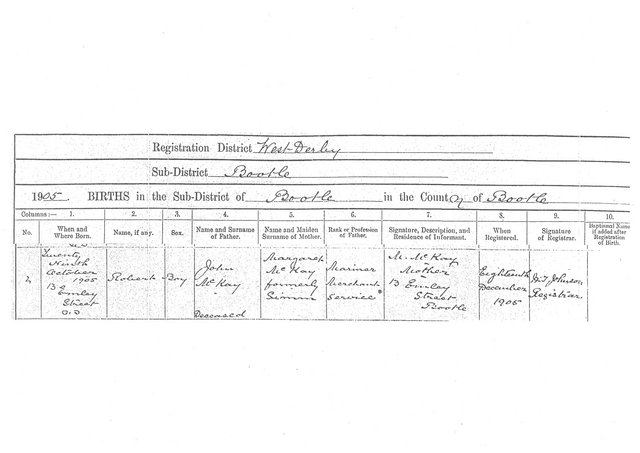 Registration District West Derby
Sub-District Bootle
1905. BIRTHS in the Sub-District of Bootle in the County of Bootle
Columns:— 1. 2. 3. 4. 5. 6. 7. 8. 9. 10.
No. When and Where Born. Name, if any. Sex. Name and Surname of Father. Name and Maiden Surname of Mother. Rank or Profession of Father. Signature, Description, and Residence of Informant. When Registered. Signature of Registrar. Baptismal Name if added after Registration of Birth.
Twenty
Ninth
October
1905
13
Emley
Street
U.D
Robert
Boy
John
McKay
Deceased
Margaret
McKay
formerly
Simm
Mariner
Merchant
Service
M. McKay
Mother
13 Emley
Street
Bootle
Eighteenth
December
1905
Johnson
Registrar.